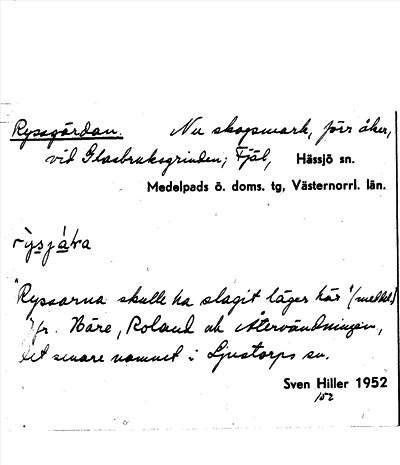 Ryssgärdan. Nu skogsmark, förr åker,
vid Glasbruksgrinden; Fjäl, Hässjö sn.
Medelpads ö. doms. tg, Västernorrl. län.
"Ryssarna skulle ha slagit läger här" (meddel.)
Jfr. Näre, Roland och Återvändningen,
det senare namnet i Ljustorps sn.
Sven Hiller 1952
152